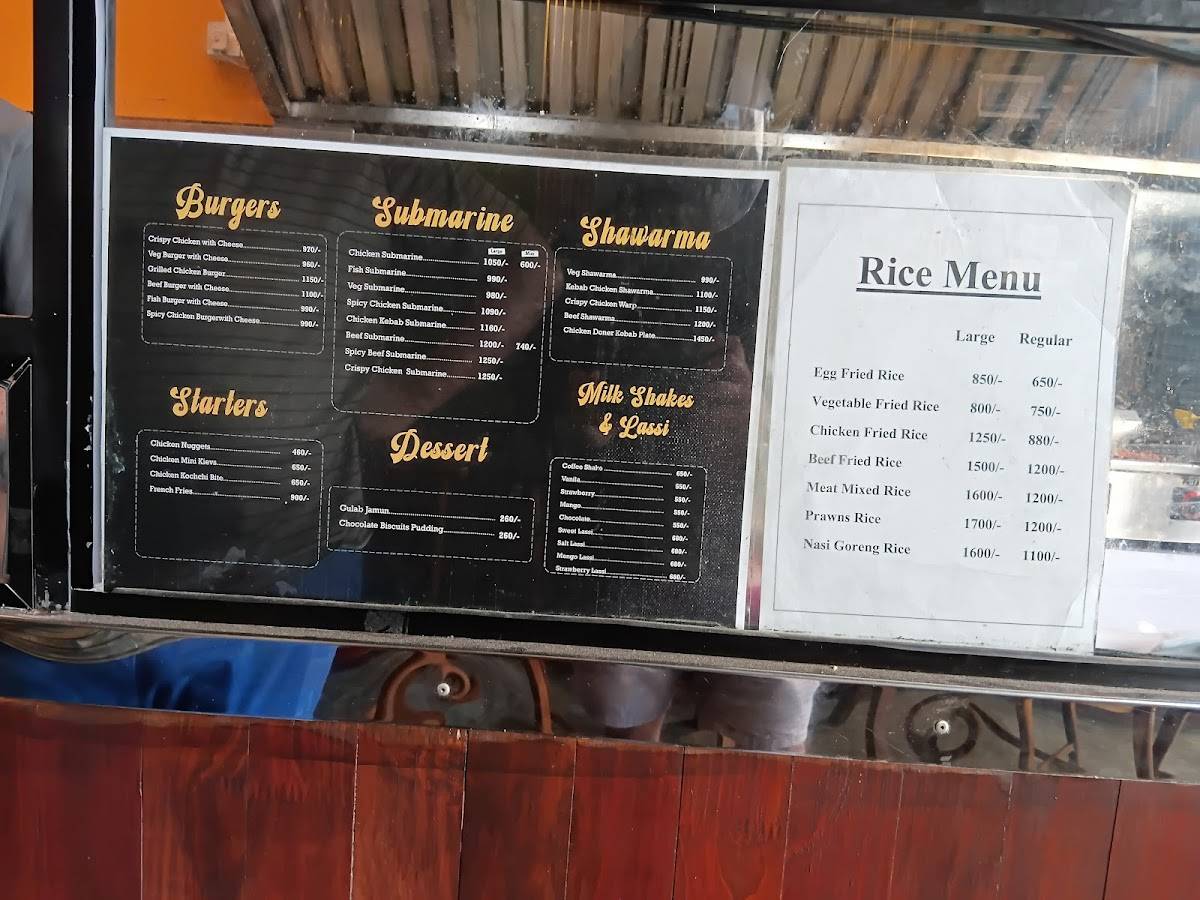 Burgers
Crispy Chicken with Cheese 970/-
Veg Burger with Cheese 960/-
Grilled Chicken Burger 1150/-
Beef Burger with Cheese 1100/-
Fish Burger with Cheese 990/-
Spicy Chicken Burgerwith Cheese 990/-
Starters
Chicken Nuggets 460/-
Chicken Mini Kievs 650/-
Chicken Kochchi Bite 650/-
French Fries 900/-
Submarine
Large Mini
Chicken Submarine 1050/- 600/-
Fish Submarine 990/-
Veg Submarine 980/-
Spicy Chicken Submarine 1090/-
Chicken Kebab Submarine 1160/-
Beef Submarine 1200/- 740/-
Spicy Beef Submarine 1250/-
Crispy Chicken Submarine 1250/-
Dessert
Gulab Jamun 260/-
Chocolate Biscuits Pudding 260/-
Shawarma
Veg Shawarma 990/-
Kebab Chicken Shawarma 1100/-
Crispy Chicken Warp 1150/-
Beef Shawarma 1200/-
Chicken Doner Kebab Plate 1450/-
Milk Shakes
& Lassi
Coffee Shake 650/-
Vanila 550/-
Strawberry 550/-
Mango 550/-
Chocolate 550/-
Sweet Lassi 680/-
Salt Lassi 680/-
Mango Lassi 680/-
Strawberry Lassi 680/-
Rice Menu
Large Regular
Egg Fried Rice 850/- 650/-
Vegetable Fried Rice 800/- 750/-
Chicken Fried Rice 1250/- 880/-
Beef Fried Rice 1500/- 1200/-
Meat Mixed Rice 1600/- 1200/-
Prawns Rice 1700/- 1200/-
Nasi Goreng Rice 1600/- 1100/-